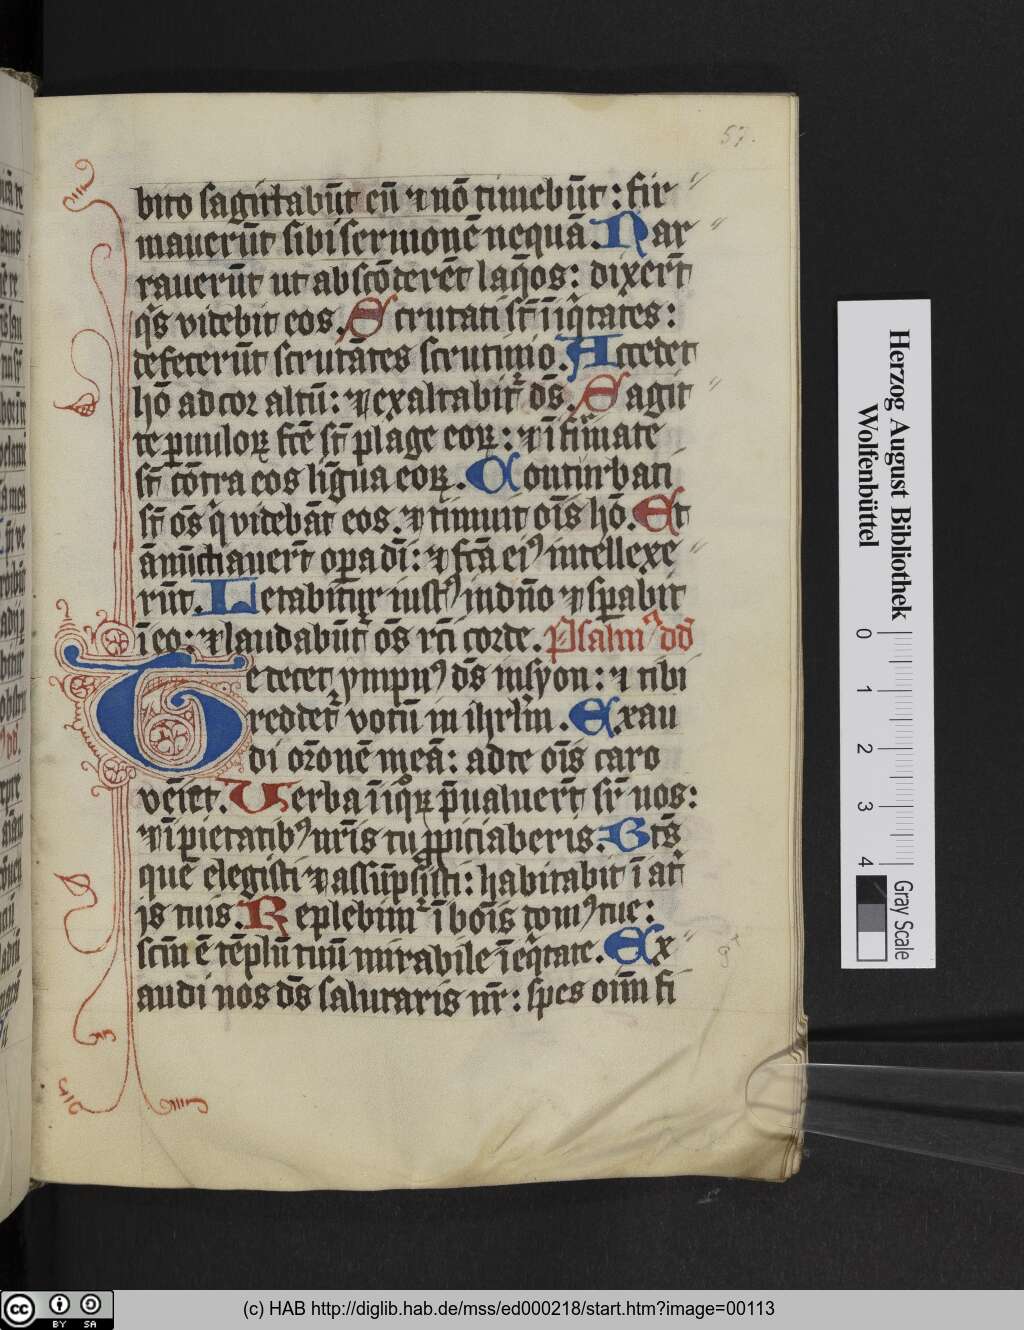 57.
bito sagittabūt eū ⁊ nō timebūt : fir
mauerūt sibi sermonē nequā. Nar
rauerūt ut abscōderēt laq̄os : dixer̄t
q̄s videbit eos. Scrutati st̄ īiq̄tates :
defecerūt scrutātes scrutinio. Accedet
hō ad cor altū : ⁊ exaltabit᷑ ds̄. Sagit
te puulorꝝ fc̄e st̄ plage eorꝝ : ⁊ īfirmate
st̄ cōtra eos līgua eorꝝ. Conturbati
st̄ oēs q̄ videbāt eos. ⁊ timuit oīs hō. Et
ānūciauer̄t oꝑa dī : ⁊ fc̄a eiꝰ intellexe
rūt. Letabitur iustꝰ in dn̄o ⁊ sꝑabit
ī eo : ⁊ laudabūt᷑ oēs rc̄i corde. Psalmꝰ dd̄
Te decet ympnꝰ ds̄ in syon : ⁊ tibi
reddet᷑ votū in ihrl̄m. Exau
di or̄onē meā : ad te oīs caro
vēiet. Verba īiq̄orꝝ p̄ualuer̄t sr̄ nos :
⁊ īpietatibꝰ nr̄is tu ꝓpiciaberis. Bt̄s
quē elegisti ⁊ assūpsisti : habitabit ī at̄
ijs tuis. Replebimur ī boīs domꝰ tue :
sc̄m ē tēplū tuū mirabile ī eq̄tate. Ex
audi nos ds̄ salutaris nr̄ : spes oīm fi
Herzog August Bibliothek
Wolfenbüttel
0 1 2 3 4
Gray Scale
cc BY SA
(c) HAB http://diglib.hab.de/mss/ed000218/start.htm?image=00113